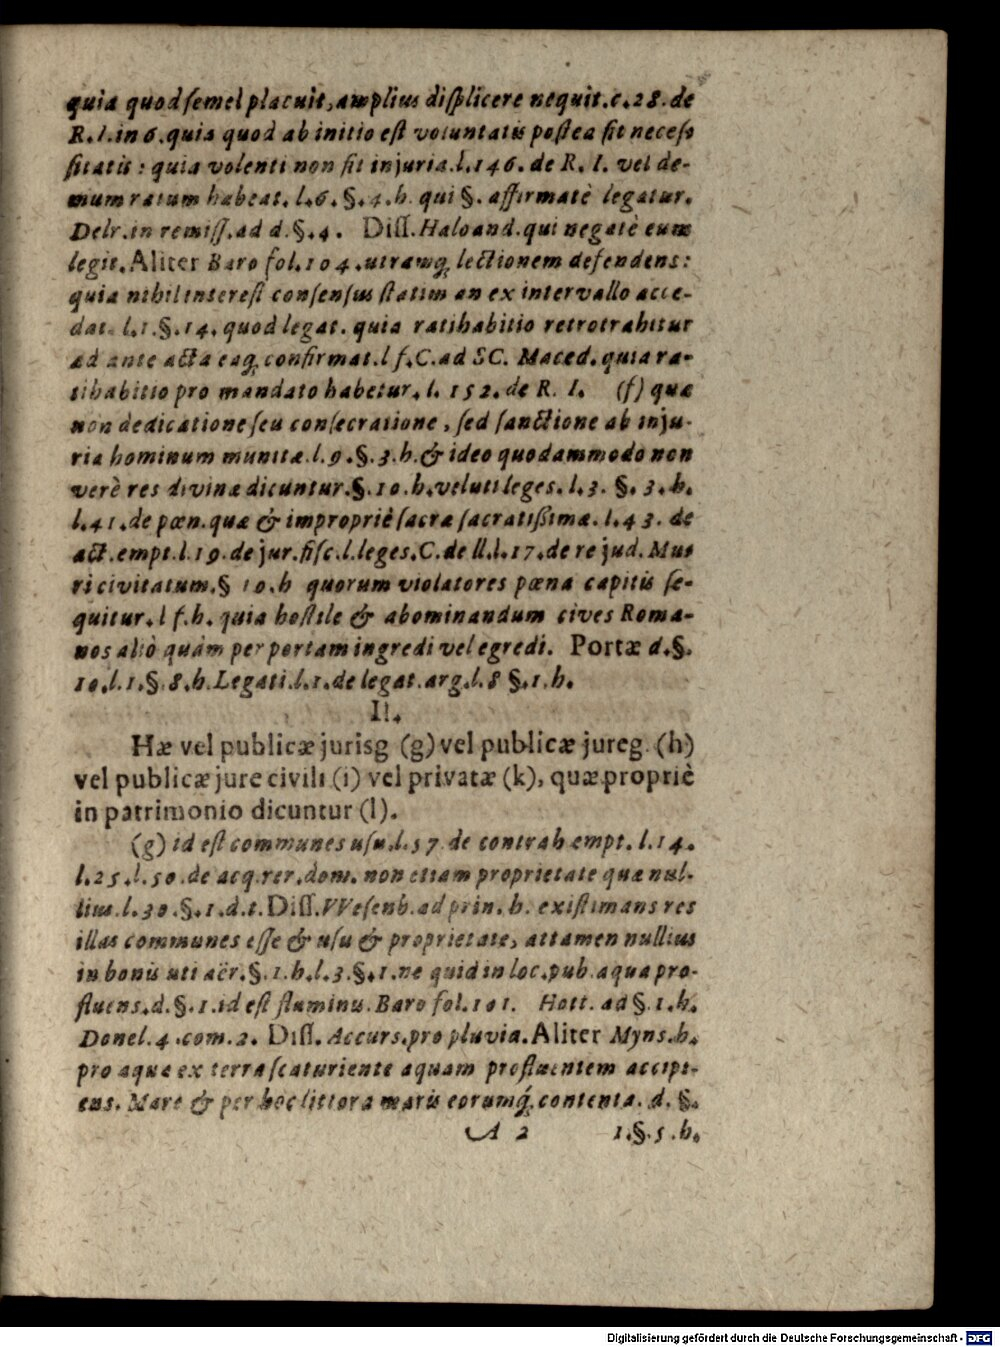 quia quod ſemel placuit, amplius diſplicere nequit. c. 28. de
R. I. in 6. quia quod ab initio eſt voluntatis poſtea fit neceſ-
ſitatis: quia volenti non fit injuria. l. 146. de R. I. vel de-
mum ratum habeat. l. 6. §. 4. h. qui §. affirmatè legatur.
Delr. in remiſſ. ad d. §. 4. Diſſ. Haloand. qui negatè eum
legit. Aliter Baro fol. 104. utramq; lectionem defendens:
quia nihil intereſt conſenſus ſtatim an ex intervallo acce-
dat. l. 1. §. 14. quod legat. quia ratihabitio retrotrahitur
ad ante acta eaq; confirmat. l f. C. ad SC. Maced. quia ra-
tihabitio pro mandato habetur. l. 152. de R. I. (f) quæ
non dedicatione ſeu conſecratione, ſed ſanctione ab inju-
ria hominum munitæ. l. 9. §. 3. h. & ideo quodammodo non
verè res divinæ dicuntur. §. 10. h. veluti leges. l. 3. §. 3. h.
l. 41. de pœn. quæ & impropriè ſacræ ſacratißimæ. l. 43. de
act. empt. l. 19. de jur. fiſc. l. leges. C. de ll. l. 17. de re jud. Mu-
ri civitatum. § 10. h quorum violatores pœna capitis ſe-
quitur. l f. h. quia hoſtile & abominandum cives Roma-
nos aliò quàm per portam ingredi vel egredi. Portæ d. §.
10. l. 1. §. 8. h. Legati. l. 1. de legat. arg. l. 8 §. 1. h.
II.
Hæ vel publicæ jurisg (g) vel publicæ jureg. (h)
vel publicæ jure civili (i) vel privatæ (k), quæ propriè
in patrimonio dicuntur (l).
(g) id eſt communes uſu. l. 57. de contrah empt. l. 14.
l. 25. l. 50. de acq. rer. dom. non etiam proprietate quæ nul-
lius. l. 30. §. 1. d. t. Diſſ. VVeſenb. ad prin. h. exiſtimans res
illas communes eſſe & uſu & proprietate, attamen nullius
in bonis uti aër. §. 1. h. l. 3. §. 1. ne quid in loc. pub. aqua pro-
fluens. d. §. 1. id eſt fluminis. Baro fol. 101. Hott. ad §. 1. h.
Donel. 4. com. 2. Diſſ. Accurſ. pro pluvia. Aliter Mynſ. h.
pro aqua ex terra ſcaturiente aquam profluentem accipi-
ens. Mare & per hoc littora maris eorumq́; contenta. d. §.
A 2 1. §. 5. h.
Digitalisierung gefördert durch die Deutsche Forschungsgemeinschaft - DFG